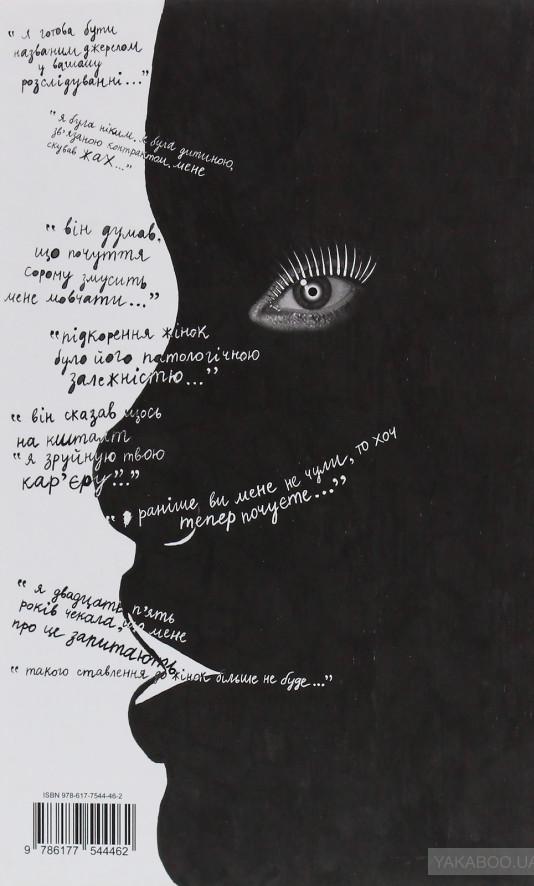 “ я готова бути
названим джерелом
у вашому
розслідуванні...”
“ я була ніким. я була дитиною,
зв’язаною контрактом. мене
скував жах...”
“ він думав,
що почуття
сорому змусить
мене мовчати...”
“підкорення жінок
було його патологічною
залежністю...”
“ він сказав щось
на кшталт
“я зруйную твою
кар’єру”...”
раніше ви мене не чули, то хоч
тепер почуєте...”
“ я двадцать п’ять
років чекала, що мене
про це запитають
“ такого ставлення до жінок більше не буде...”
ISBN 978-617-7544-46-2
9 786177 544462
YAKABOO.UA